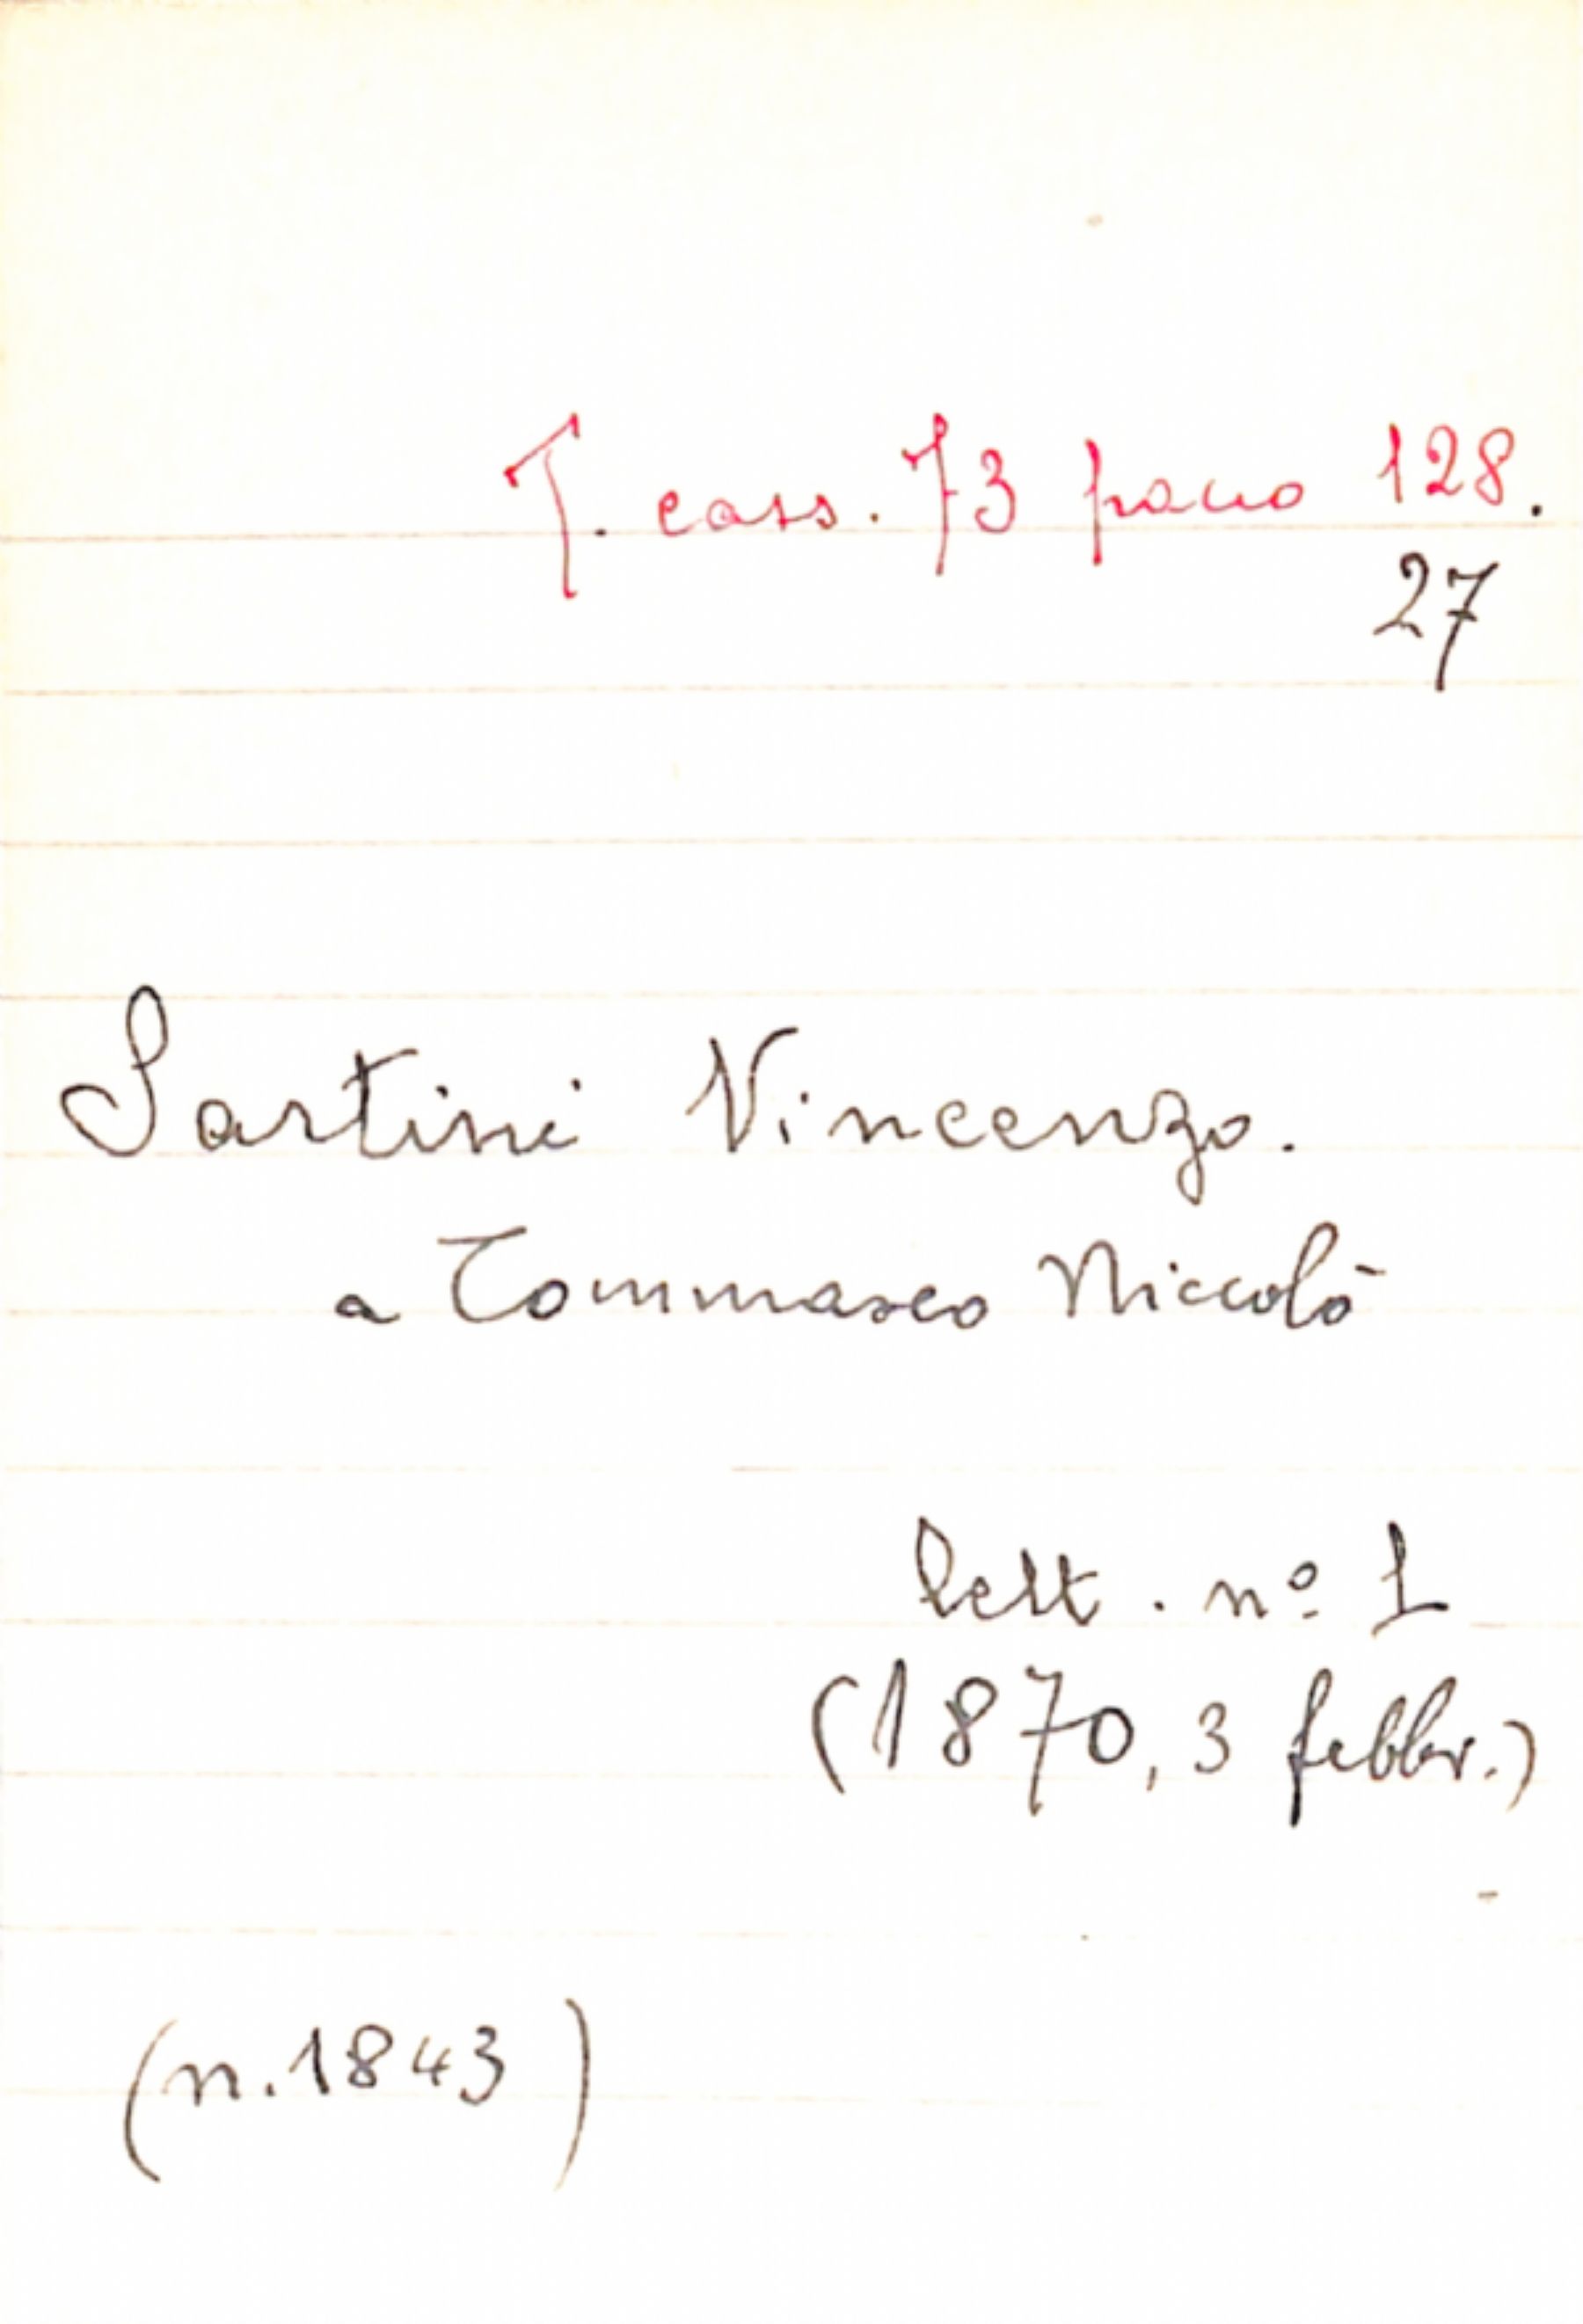 T. cass. 73 pacco 128.
27
Sartini Vincenzo.
a Tommaseo Niccolò
lett. nº 1
(1870, 3 febbr.)
(n. 1843)